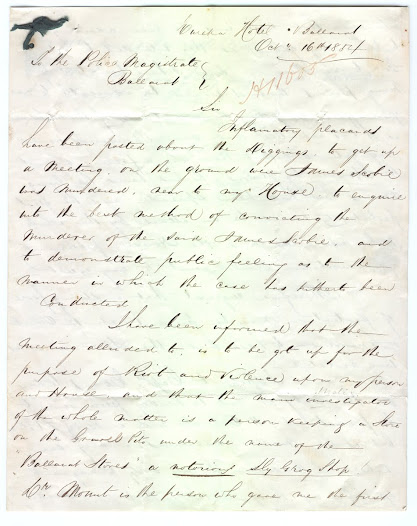 Eureka Hotel Ballaarat
Octr 16th 1854
To the Police Magistrate
Ballaarat
Sir
Inflamatory placards
have been posted about the Diggings, to get up
a Meeting, on the ground were James Scobie
was Murdered, near to my House, to enquire
into the best method of convicting the
Murderer of the said James Scobie, and
to demonstrate public feeling as to the
manner in which the case has hitherto been
Conducted.
I have been informed that the
meeting alluded to, is to be got up for the
purpose of Riot and Violence upon my person
and House, and that the main investigator
of the whole matter is a person keeping a Store
on the Gravel Pits, under the name of the
Ballaarat Stores' a notorious Sly Grog Shop.
Dr. Mount is the person who gave me the first